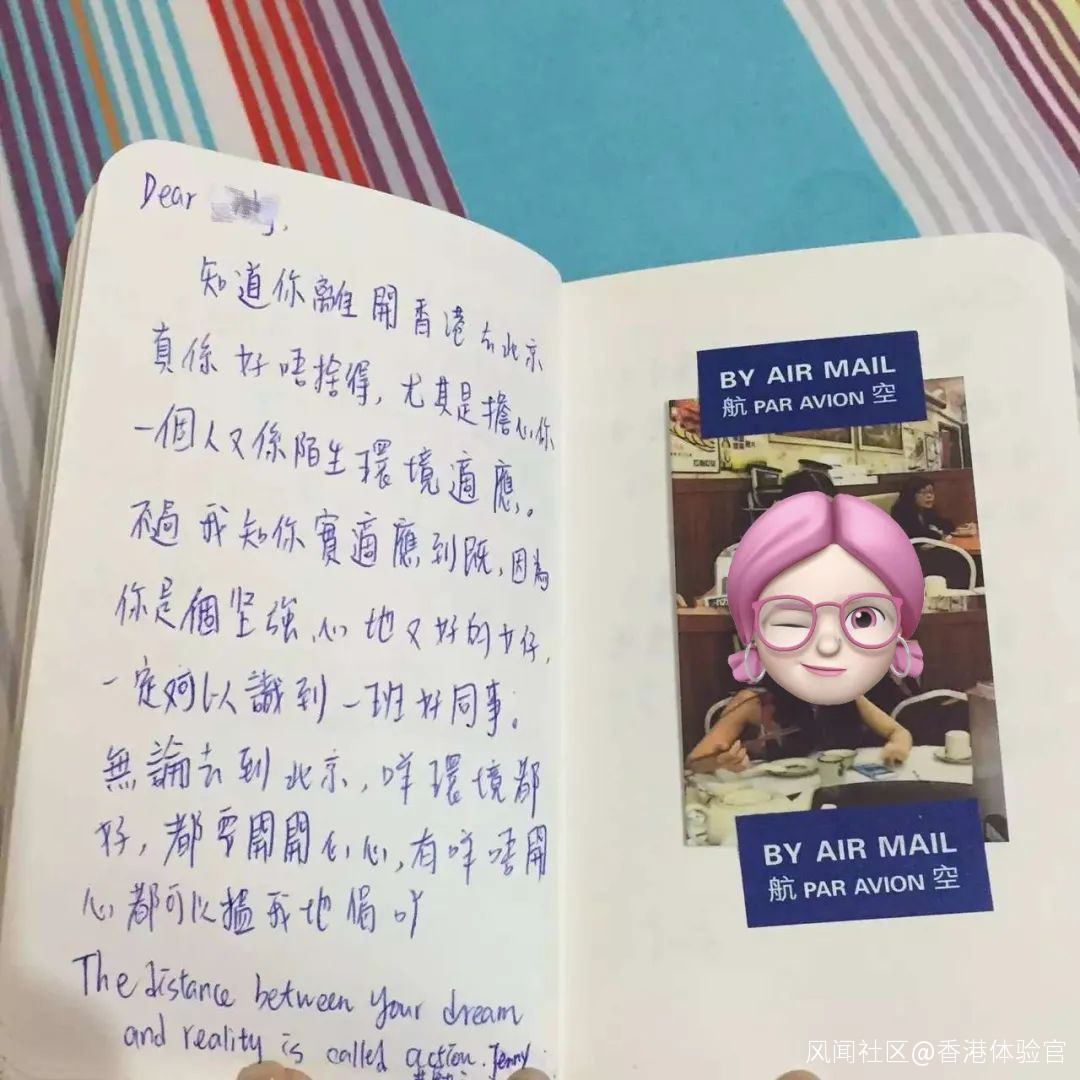 Dear
知道你離開香港去北京
真係好唔捨得，尤其是擔心你
一個人又係陌生環境適應。
不過我知你實適應到既，因為
你是個坚強，心地又好的女仔，
一定可以識到一班好同事。
無論去到北京，咩環境都
好，都要開開心心，有咩唔開
心都可以搵我地倾吖
The distance between your dream
and reality is called action. Jenny
BY AIR MAIL
航 PAR AVION 空
BY AIR MAIL
航 PAR AVION 空
风闻社区@香港体验官